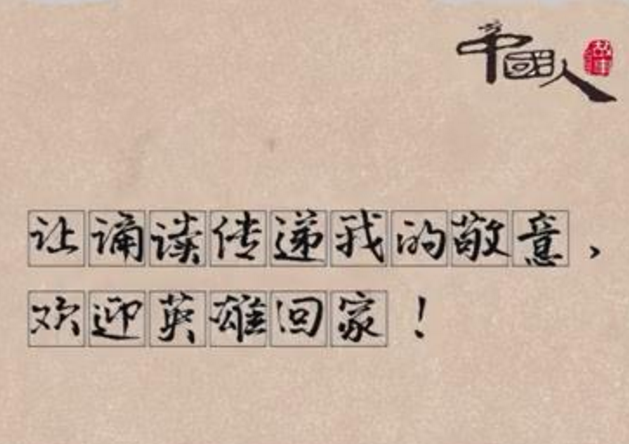 中國人
故事
让诵读传递我的敬意,
欢迎英雄回家!